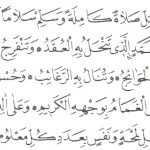 ـل صَلَاةً كَامِلَةً وَسَلِّمْ سَلَامًا
ـمَّدٍ الَّذِي تَنْحَلُّ بِهِ الْعُقَدُ وَتَنْفَرِجُ
الْحَوَائِجُ وَتُنَالُ بِهِ الرَّغَائِبُ وَحُسْنُ
ـى الْغَمَامُ بِوَجْهِهِ الْكَرِيمِ وَعَلَى اٰلِهِ
لَمْحَةٍ وَنَفَسٍ بِعَدَدِ كُلِّ مَعْلُومٍ